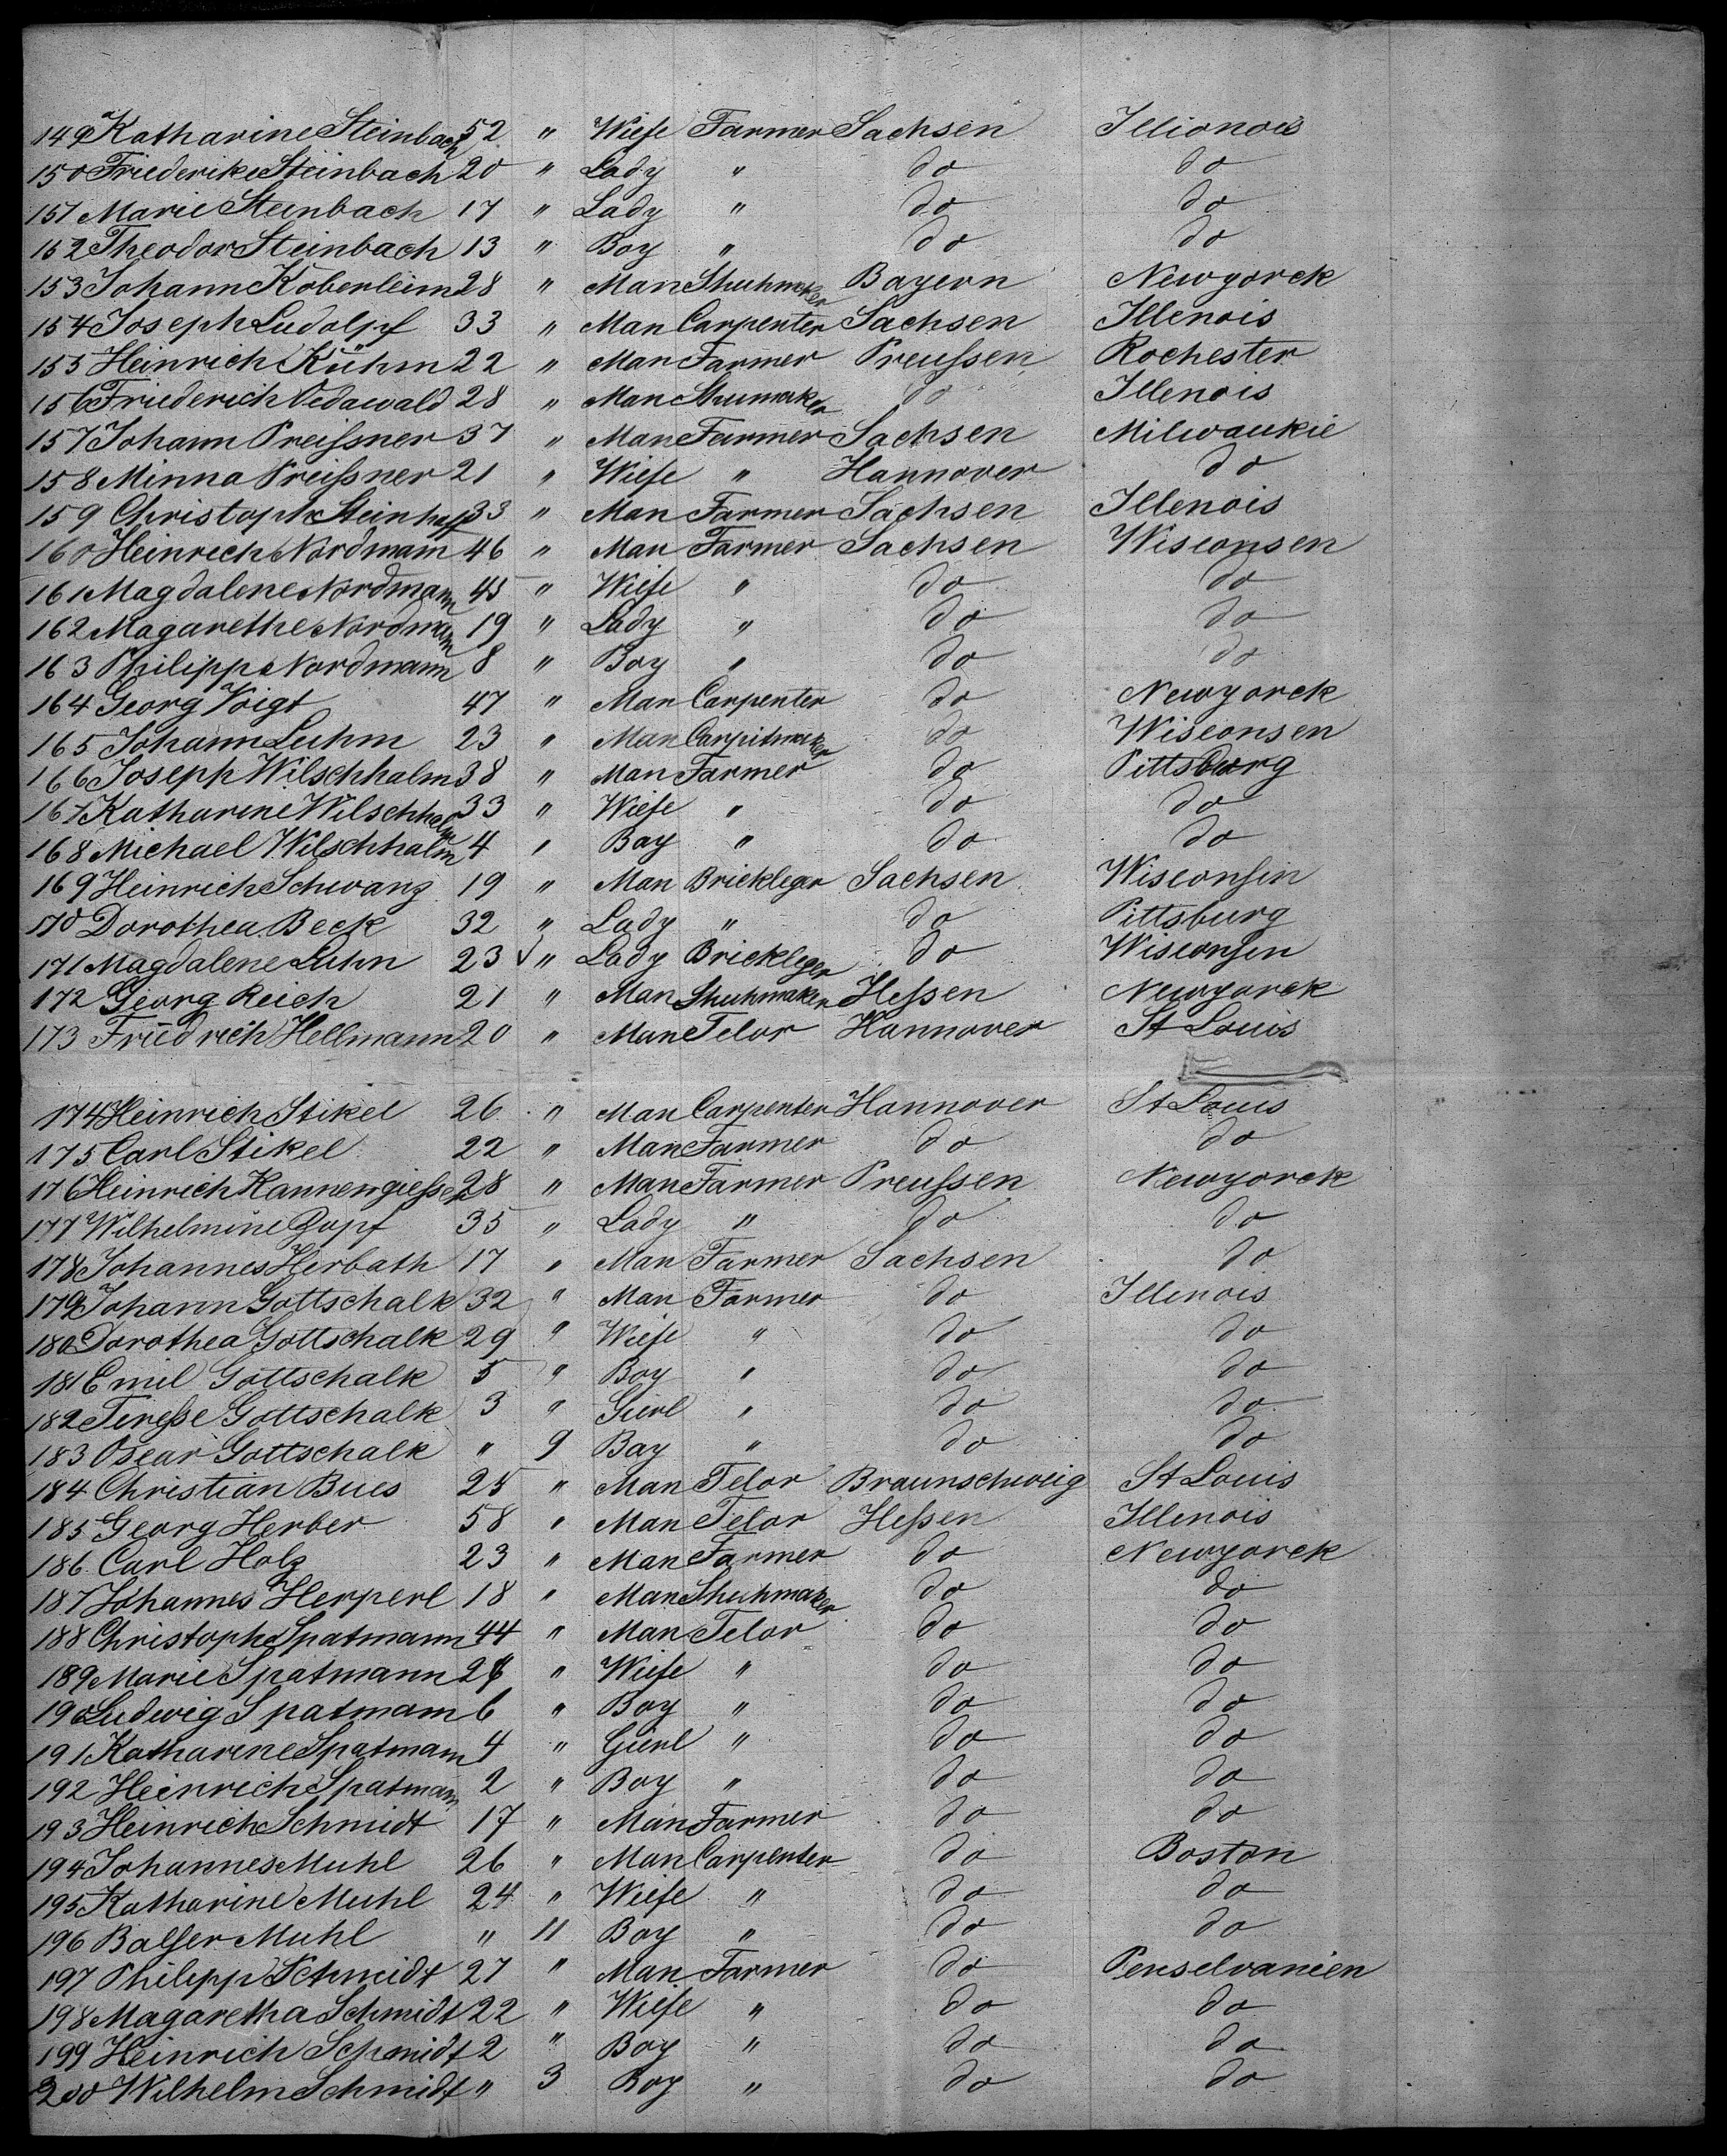 149 Katharine Steinbach 52 " Wiefe Farmer Sachsen Illionois
150 Friederike Steinbach 20 " Lady " do do
151 Marie Steinbach 17 " Lady " do do
152 Theodor Steinbach 13 " Boy " do do
153 Johann Koberleim 28 " Man Shuhmaker Bayern Newyorck
154 Joseph Ludolpf 33 " Man Carpenter Sachsen Illenois
155 Heinrich Kühm 22 " Man Farmer Preußen Rochester
156 Friederich Vedawald 28 " Man Shumaker do Illenois
157 Johann Preißner 37 " Man Farmer Sachsen Milwaukie
158 Minna Preißner 21 " Wiefe " Hannover do
159 Christoph Steinhoff 33 " Man Farmer Sachsen Illenois
160 Heinrich Nordmann 46 " Man Farmer Sachsen Wisconsen
161 Magdalene Nordmann 45 " Wiefe " do do
162 Magarethe Nordmann 19 " Lady " do do
163 Philipp Nordmann 8 " Boy " do do
164 Georg Voigt 47 " Man Carpenter do Newyorck
165 Johann Luhm 23 " Man Carpitmaker do Wisconsen
166 Joseph Wilschhalm 38 " Man Farmer do Pittsburg
167 Katharine Wilschhalm 33 " Wiefe " do do
168 Michael Wilschhalm 4 " Boy " do do
169 Heinrich Schwanz 19 " Man Brickleger Sachsen Wisconsin
170 Dorothea Beck 32 " Lady " do Pittsburg
171 Magdalene Luhn 23 " Lady Brickleger do Wisconsin
172 Georg Reich 21 " Man Shuhmaker Heßen Newyorck
173 Friedrich Hellmann 20 " Man Telor Hannover St Louis
174 Heinrich Stikel 26 " Man Carpenter Hannover St Louis
175 Carl Stikel 22 " Man Farmer do do
176 Heinrich Kannengießer 28 " Man Farmer Preußen Newyorck
177 Wilhelmine Zopf 35 " Lady " do do
178 Johannes Herbath 17 " Man Farmer Sachsen do
179 Johann Gottschalk 32 " Man Farmer do Illenois
180 Dorothea Gottschalk 29 " Wiefe " do do
181 Emil Gottschalk 5 " Boy " do do
182 Tereße Gottschalk 3 " Gierl " do do
183 Oscar Gottschalk " 9 Boy " do do
184 Christian Bues 25 " Man Telor Braunschweig St Louis
185 Georg Herber 58 " Man Telor Heßen Illenois
186 Carl Holz 23 " Man Farmer do Newyorck
187 Johannes Herperl 18 " Man Shuhmaker do do
188 Christoph Spatmann 44 " Man Telor do do
189 Marie Spatmann " Wiefe " do do
190 Ludwig Spatmann 6 " Boy " do do
191 Katharine Spatmann 4 " Gierl " do do
192 Heinrich Spatmann 2 " Boy " do do
193 Heinrich Schmidt 17 " Man Farmer do do
194 Johannes Muhl 26 " Man Carpenter do Boston
195 Katharine Muhl 24 " Wiefe " do do
196 Balser Muhl " 11 Boy " do do
197 Philipp Schmidt 27 " Man Farmer do Penselvanien
198 Magaretha Schmidt 22 " Wiefe " do do
199 Heinrich Schmidt 2 " Boy " do do
200 Wilhelm Schmidt " 3 Boy " do do